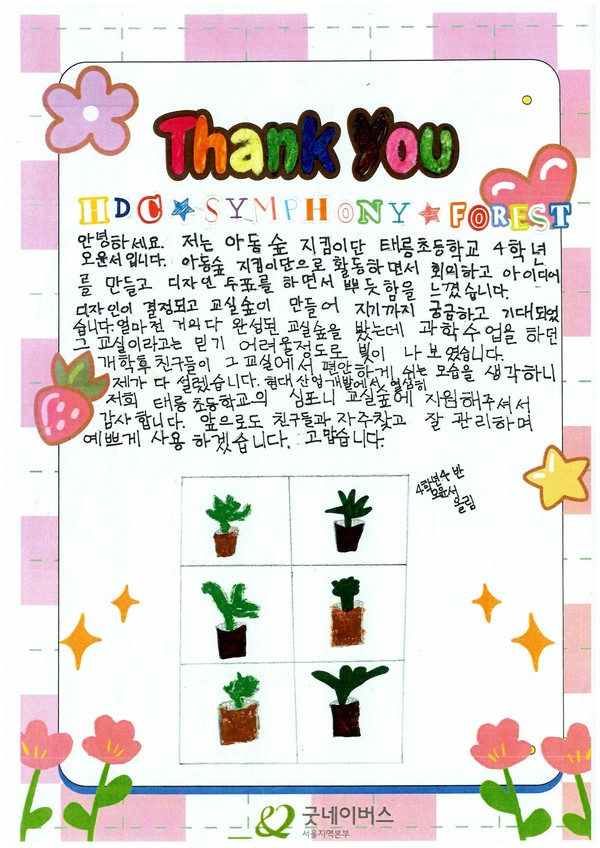 Thank You
HDC★SYMPHONY★FOREST
안녕하세요. 저는 아동숲 지킴이단 태릉초등학교 4학년
오윤서입니다. 아동숲 지킴이단으로 활동하면서 회의하고 아이디어
를 만들고 디자인 투표를 하면서 뿌듯함을 느꼈습니다.
디자인이 결정되고 교실숲이 만들어 지기까지 궁금하고 기대되었
습니다. 얼마전 거의다 완성된 교실숲을 봤는데 과학수업을 하던
그 교실이라고는 믿기 어려울정도로 빛이 나 보였습니다.
개학후 친구들이 그 교실에서 편안하게 쉬는 모습을 생각하니
제가 다 설렜습니다. 현대산업개발에서 열심히
저희 태릉초등학교의 심포니 교실숲에 지원해주셔서
감사합니다. 앞으로도 친구들과 자주찾고 잘 관리하며
예쁘게 사용 하겠습니다. 고맙습니다.
4학년4반
오윤서
올림
굿네이버스
서울지역본부